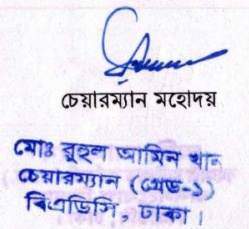 চেয়ারম্যান মহোদয়
মোঃ রুহুল আমিন খান
চেয়ারম্যান (গ্রেড-১)
বিএডিসি, ঢাকা।